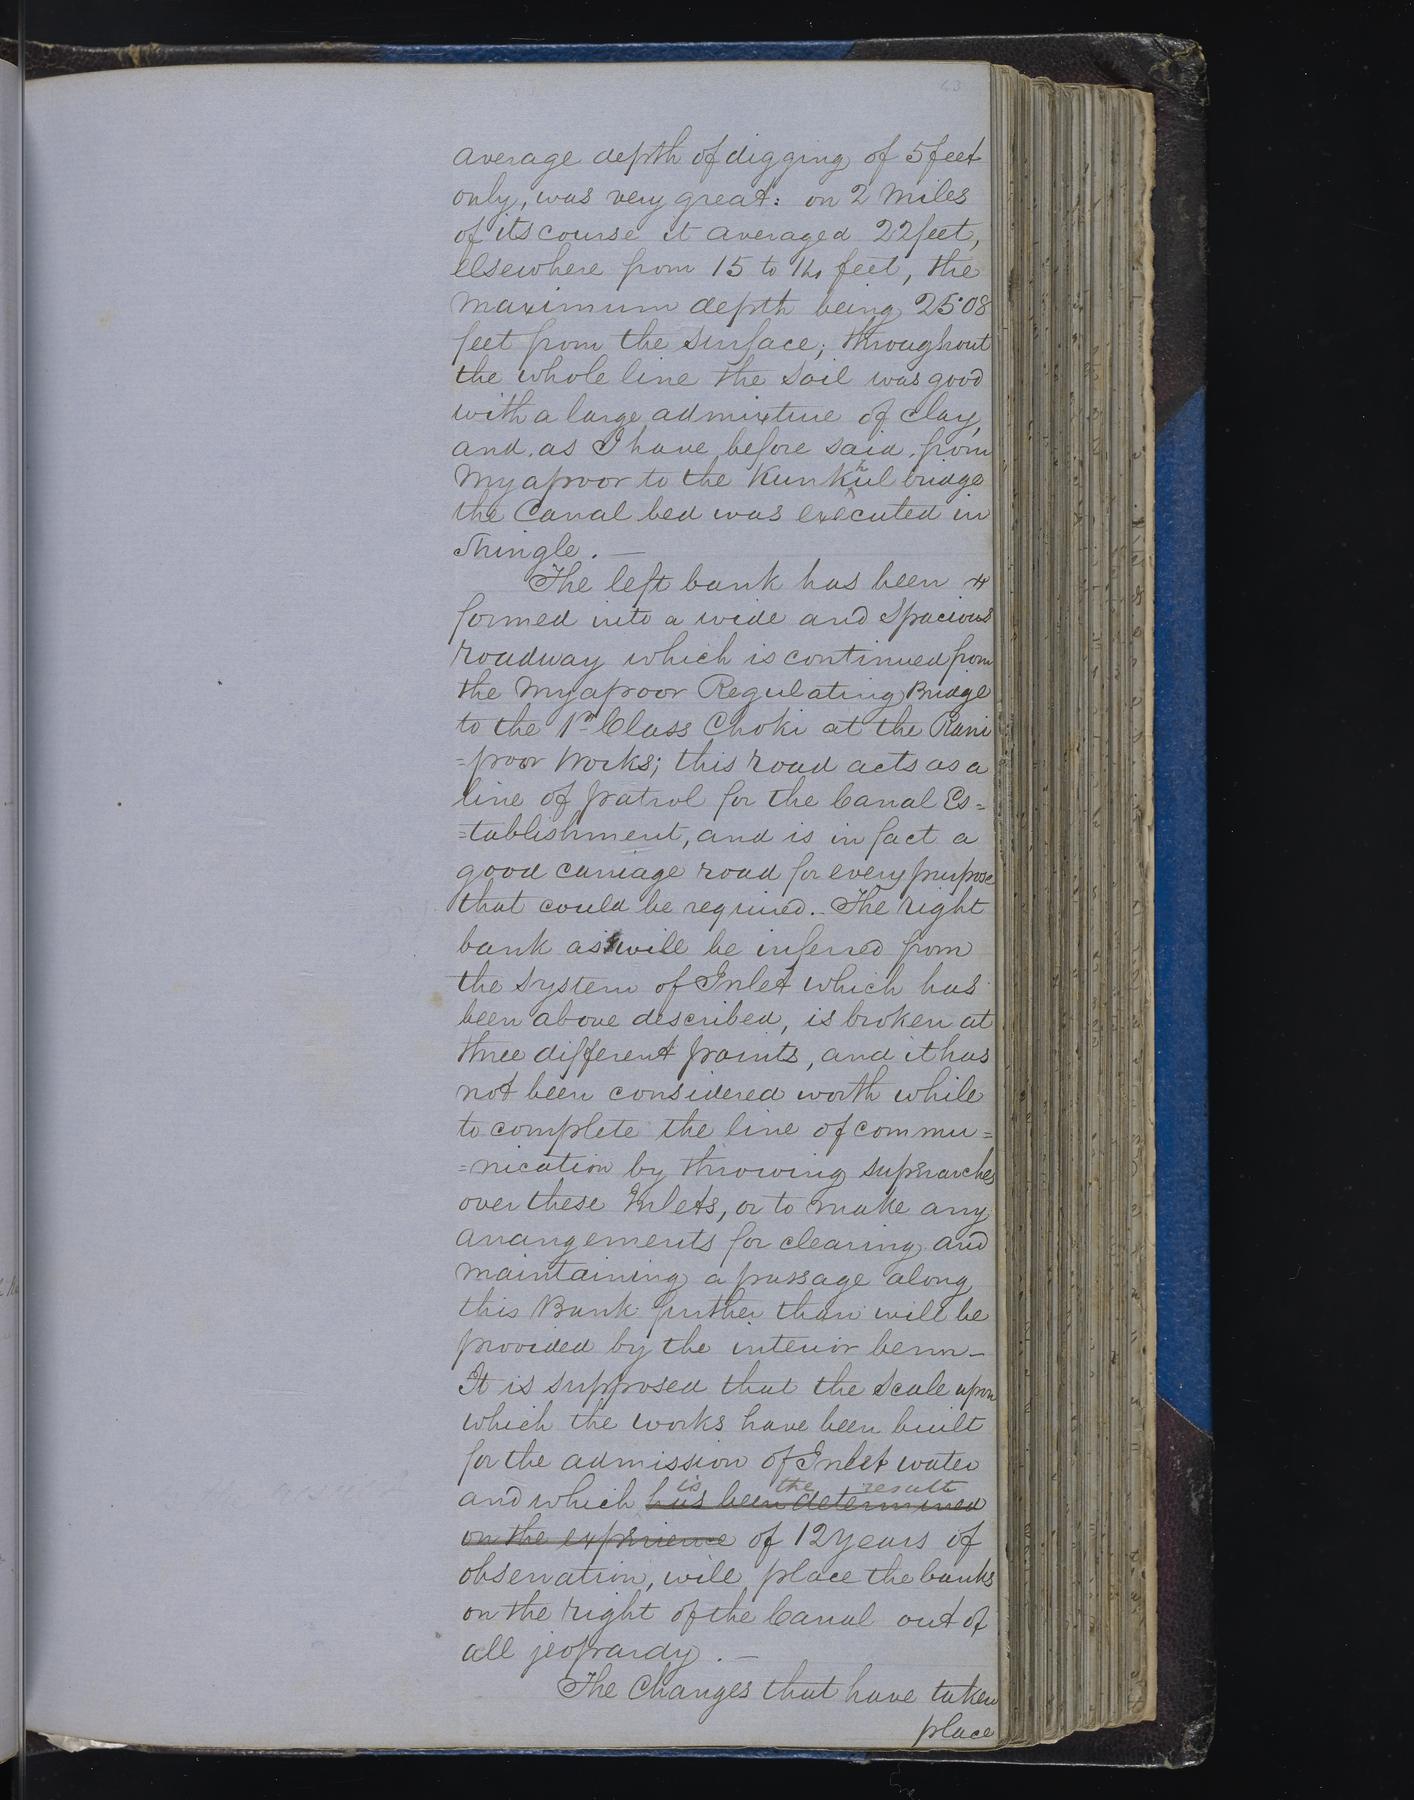 63
average depth of digging of 5 feet
only, was very great: on 2 Miles
of its course it averaged 22 feet,
elsewhere from 15 to 14 feet, the
maximum depth being 25.08
feet from the surface; throughout
the whole line the soil was good
with a large admixture of clay,
and, as I have before said, from
Myapoor to the Kunkhul bridge
the Canal bed was executed in
Shingle. —
The left bank has been
formed into a wide and spacious
roadway which is continued from
the Myapoor Regulating Bridge
to the 1st Class Choki at the Rani
=poor Works; this road acts as a
line of patrol for the Canal Es=
=tablishment, and is in fact a
good carriage road for every purpose
that could be required. The right
bank as will be inferred from
the system of Inlet which has
been above described, is broken at
three different points, and it has
not been considered worth while
to complete the line of commu=
=nication by throwing superarches
over these Inlets, or to make any
arrangements for clearing and
maintaining a passage along
this Bank further than will be
provided by the interior berm —
It is supposed that the scale upon
which the works have been built
for the admission of Inlet water
is the result
and which has been determined
on the experience of 12 years of
observation, will place the banks
on the right of the Canal out of
all jeopardy. —
The Changes that have taken
place